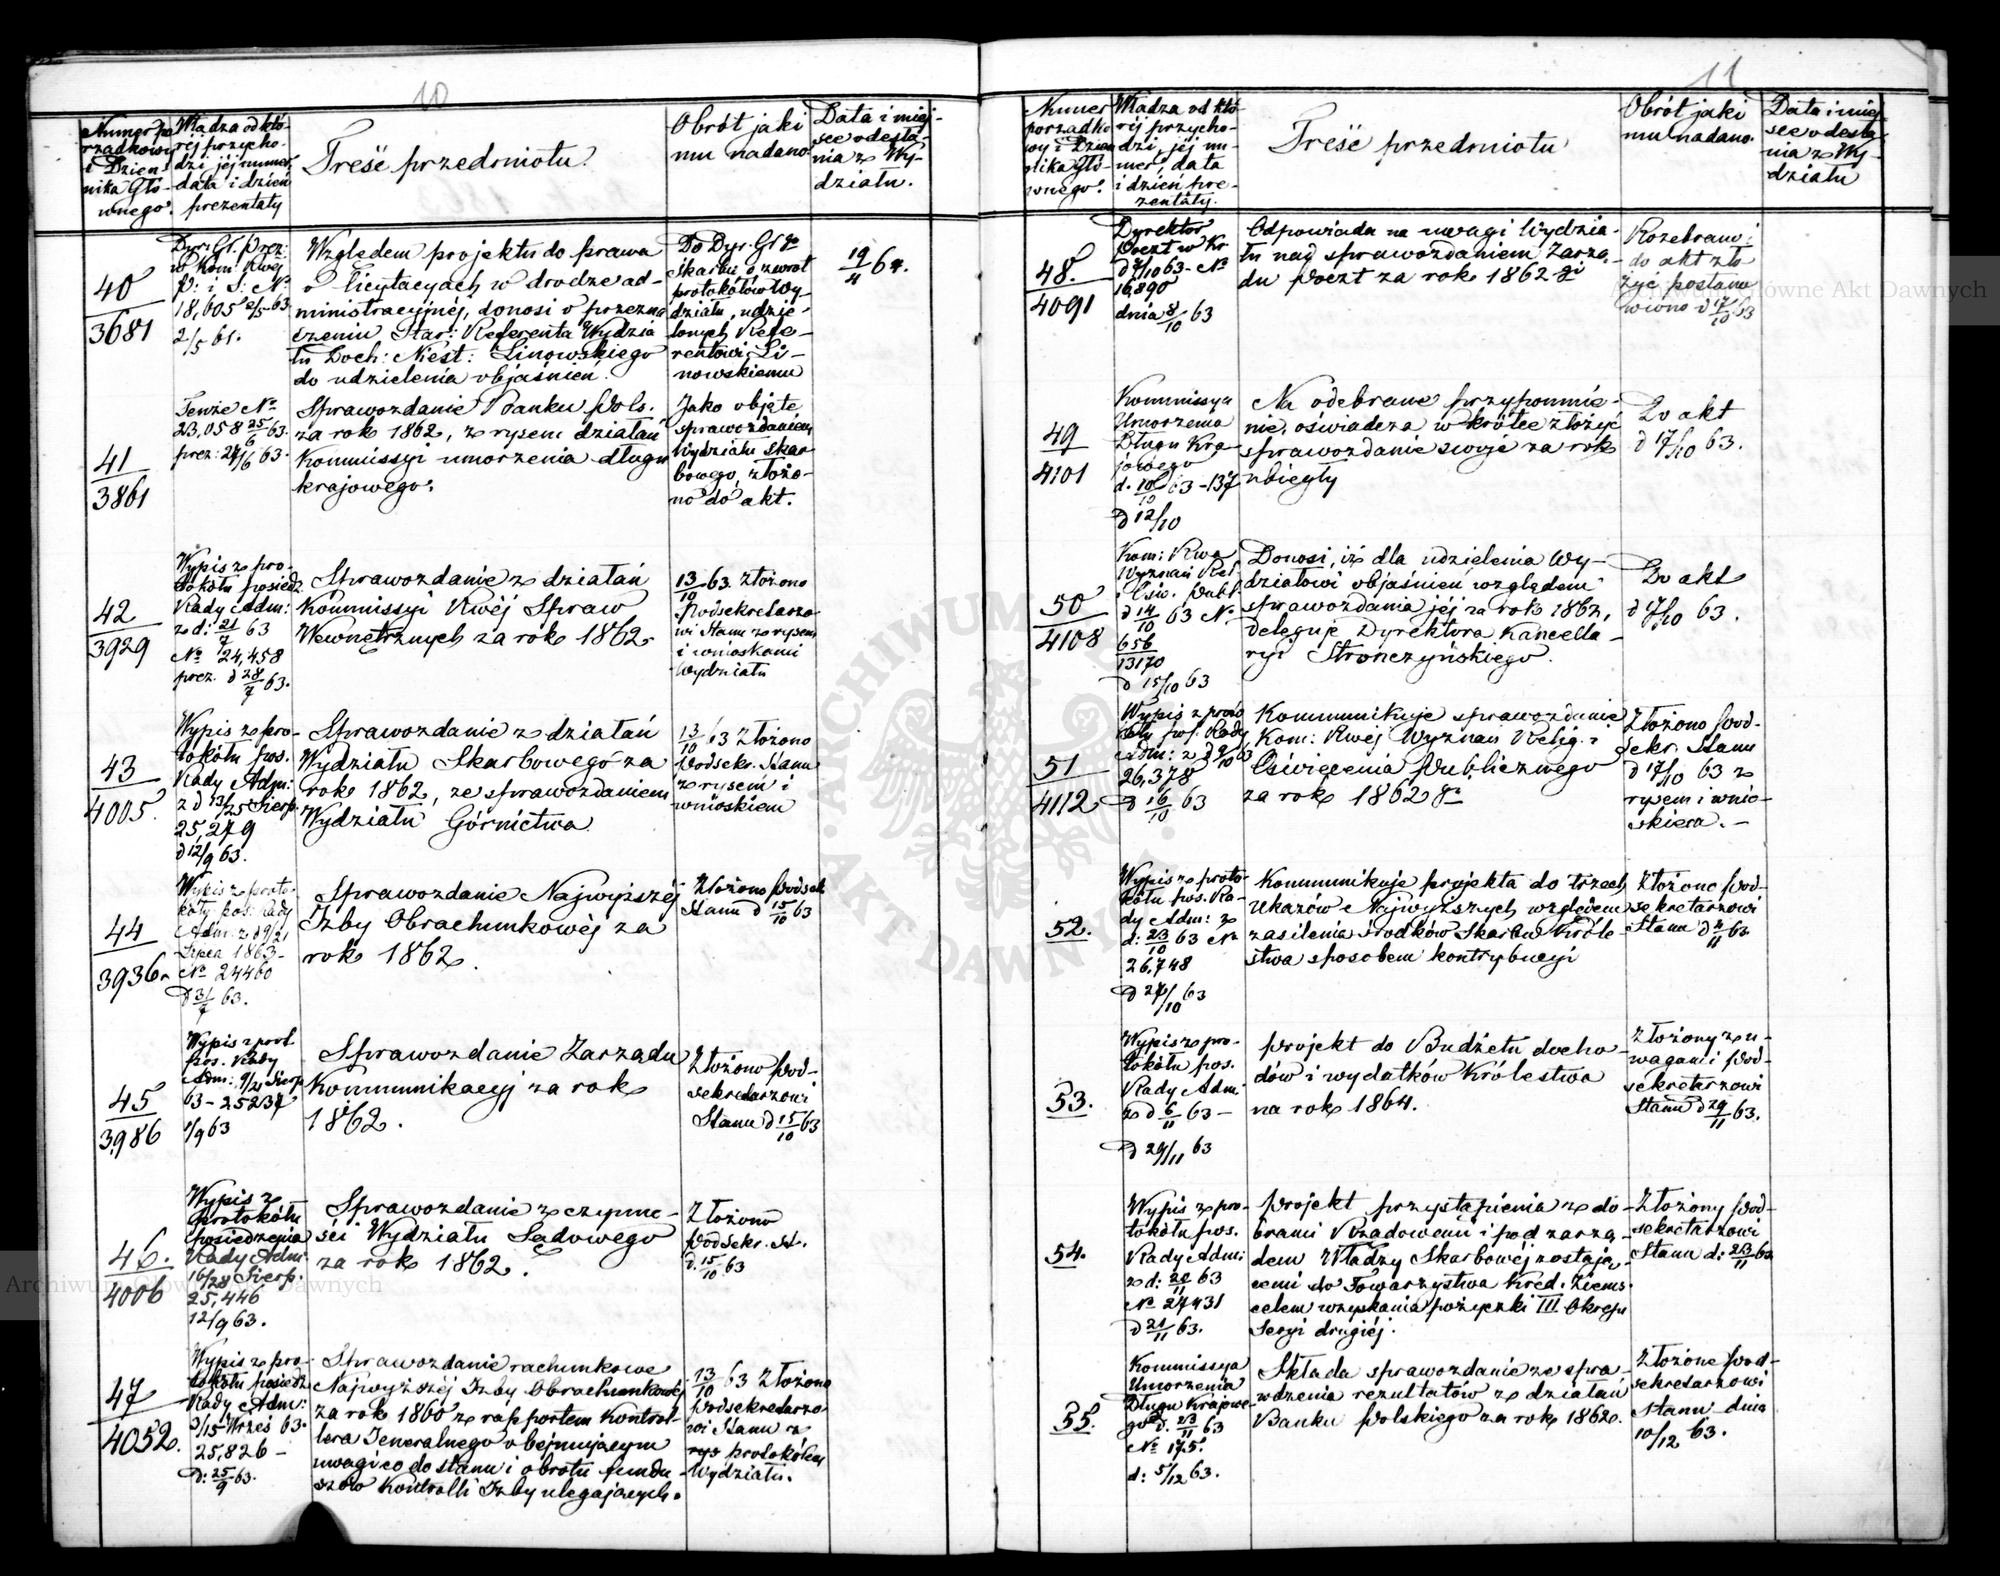 10
Numer po
rządkowy
i Dzien
nika Głó-
wnego.
Władza od któ-
réj przycho-
dzi, jéj numer,
data i dzień
prezentaty
Treść przedmiotu.
Obrót jaki
mu nadano.
Data i miej-
sce odesła-
nia z Wy-
działu.
40
3681
Dyr. Gł. Prez:
w Kom. Rwéj
P: i S: No
18,605 2/5 63
2/5 61.
Względem projektu do prawa
o licytacyach w drodze ad-
ministracyjnéj, donosi o przezna
czeniu Star: Referenta Wydzia
łu Doch: Niest: Linowskiego
do udzielenia objaśnień.
Do Dyr. Gł
Skarbu o zwrot
protokółów Wy
działu, udzie-
lonych Refe-
rentowi Li-
nowskiemu
19/4 64.
41
3861
Tenże No
23,058 25/6 63.
prez: 27/6 63.
Sprawozdanie Banku Pols.
za rok 1862, z rysem działań
Kommissyi umorzenia długu
krajowego.
Jako objęte
sprawozdaniem
Wydziału Skar
bowego, złożo-
no do akt.
42
3929
Wypis z pro-
tokółu posiedz.
Rady Adm:
z d: 21/7 63
No 24,458
prez. d 28/7 63.
Sprawozdanie z działań
Kommissyi Rwéj Spraw
Wewnętrznych za rok 1862.
13/10 63 złożono
Podsekretarzo-
wi Stanu z rysem
i wnioskami
Wydziału
43
4005.
Wypis z pro-
tokółu pos.
Rady Adm:
z d 13/25 Sierp.
25,279
d 12/9 63.
Sprawozdanie z działań
Wydziału Skarbowego za
rok 1862, ze sprawozdaniem
Wydziału Górnictwa
13/10 63 Złożono
Podsekr. Stanu
z rysem i
wnioskiem
44
3936.
Wypis z proto-
kołu pos. Rady
Adm. z d 9/21
Lipca 1863-
No 24460
d 31/7 63.
Sprawozdanie Najwyższéj
Izby Obrachunkowéj za
rok 1862.
Złożono Podsek
Stanu d 15/10 63
45
3986
Wypis z prot
pos. Rady
Adm: 9/21 Sierp
63- 25237
1/9 63
Sprawozdanie Zarządu
Kommunikacyj za rok
1862.
Złożono Pod-
sekretarzowi
Stanu d 15/10 63
46.
4006
Wypis z
protokółu
posiedzenia
Rady Adm
16/28 Sierp.
25,446
12/9 63.
Sprawozdanie z czynno-
ści Wydziału Sądowego
za rok 1862.
Złożono
Podsekr. St.
d. 15/10 63
47
4052.
Wypis z pro-
tokółu posiedz
Rady Adm:
3/15 Wrześ 63.
25,826 -
d: 25/9 63.
Sprawozdanie rachunkowe
Najwyższéj Izby Obrachunkowéj
za rok 1860 z rapportem Kontrol-
lera Jeneralnego obejmującym
uwagi co do stanu i obrotu fundu-
szów Kontrolli Izby ulegających.
13/10 63 Złożono
Podsekretarzo
wi Stanu z
rys protokółem
Wydziału.
11
Numer
porządko
wy i Dzien
nika Głó-
wnego.
Władza od któ-
réj przycho-
dzi, jéj nu-
mer, data
i dzień pre-
zentaty.
Treść przedmiotu
Obrót jaki
mu nadano.
Data i miej-
sce odesła-
nia z Wy-
działu
48.
4091
Dyrektor
Poczt w Kr
d 7/10 63 - No
16,890
dnia 8/10 63
Odpowiada na uwagi Wydzia-
łu nad sprawozdaniem Zarzą-
du Poczt za rok 1862 gi
Rozebrano i
do akt zło
żyć postano
wiono d 17/10 63
49
4101
Kommissya
Umorzenia
Długu Kra-
jowego
d. 10/10 63 - 137
d 12/10
Na odebrane przypomnie-
nie, oświadcza wkrótce złożyć
sprawozdanie swoje za rok
ubiegły
Do akt
d 17/10 63.
50
4108
Kom: Rwa
Wyznań Rel.
i Ośw. Publ.
d 14/10 63 N.
656
13170
d 15/10 63
Donosi, iż dla udzielenia Wy-
działowi objaśnień względem
sprawozdania jéj za rok 1862,
deleguje Dyrektora Kancella-
ryi Stronczyńskiego.
Do akt
d 17/10 63.
51
4112
Wypis z proto
kółu pos. Rady
Adm: z d 9/10 63
26,378
d 16/10 63
Kommunikuje sprawozdanie
Kom: Rwéj Wyznań Relig. i
Oświecenia Publicznego
za rok 1862 gi
Złożono Pod-
sekr. Stanu
d 17/10 63 z
rysem i wnio-
skiem. -
52.
Wypis z proto-
kółu pos. Ra-
dy Adm: z
d: 23/10 63 No
26,748
d 27/10 63
Kommunikuje projekta do trzech
Ukazów Najwyższych względem
zasilenia środków Skarbu Króle-
stwa sposobem kontrybucyi
Złożono Pod-
sekretarzowi
Stanu d 2/11 63
53.
Wypis z pro-
tokółu pos.
Rady Adm:
z d 6/11 63 -
d 29/11 63
Projekt do Budżetu docho-
dów i wydatków Królestwa
na rok 1864.
Złożony z u-
wagami Pod-
sekretarzowi
Stanu d 29/11 63.
54.
Wypis z pro-
tokółu pos.
Rady Adm:
z d: 20/11 63
No 27431
d 21/11 63.
Projekt przystąpienia z do-
brami Rządowemi i pod zarzą-
dem Władzy Skarbowéj zostają-
cemi do Towarzystwa Kred. Ziems.
celem wzyskania pożyczki III Okresu
Seryi drugiéj.
Złożony Pod-
sekretarzowi
Stanu d: 23/11 63
55.
Kommissya
Umorzenia
Długu Krajowe-
go d. 23/11 63
No 175.
d: 5/12 63.
Składa sprawozdanie ze spra-
wdzenia rezultatów z działań
Banku Polskiego za rok 1862.
Złożone Pod-
sekretarzowi
Stanu dnia
10/12 63.
ARCHIWUM
AKT DAWNYCH
Archiwum Główne Akt Dawnych
Archiwum Główne Akt Dawnych